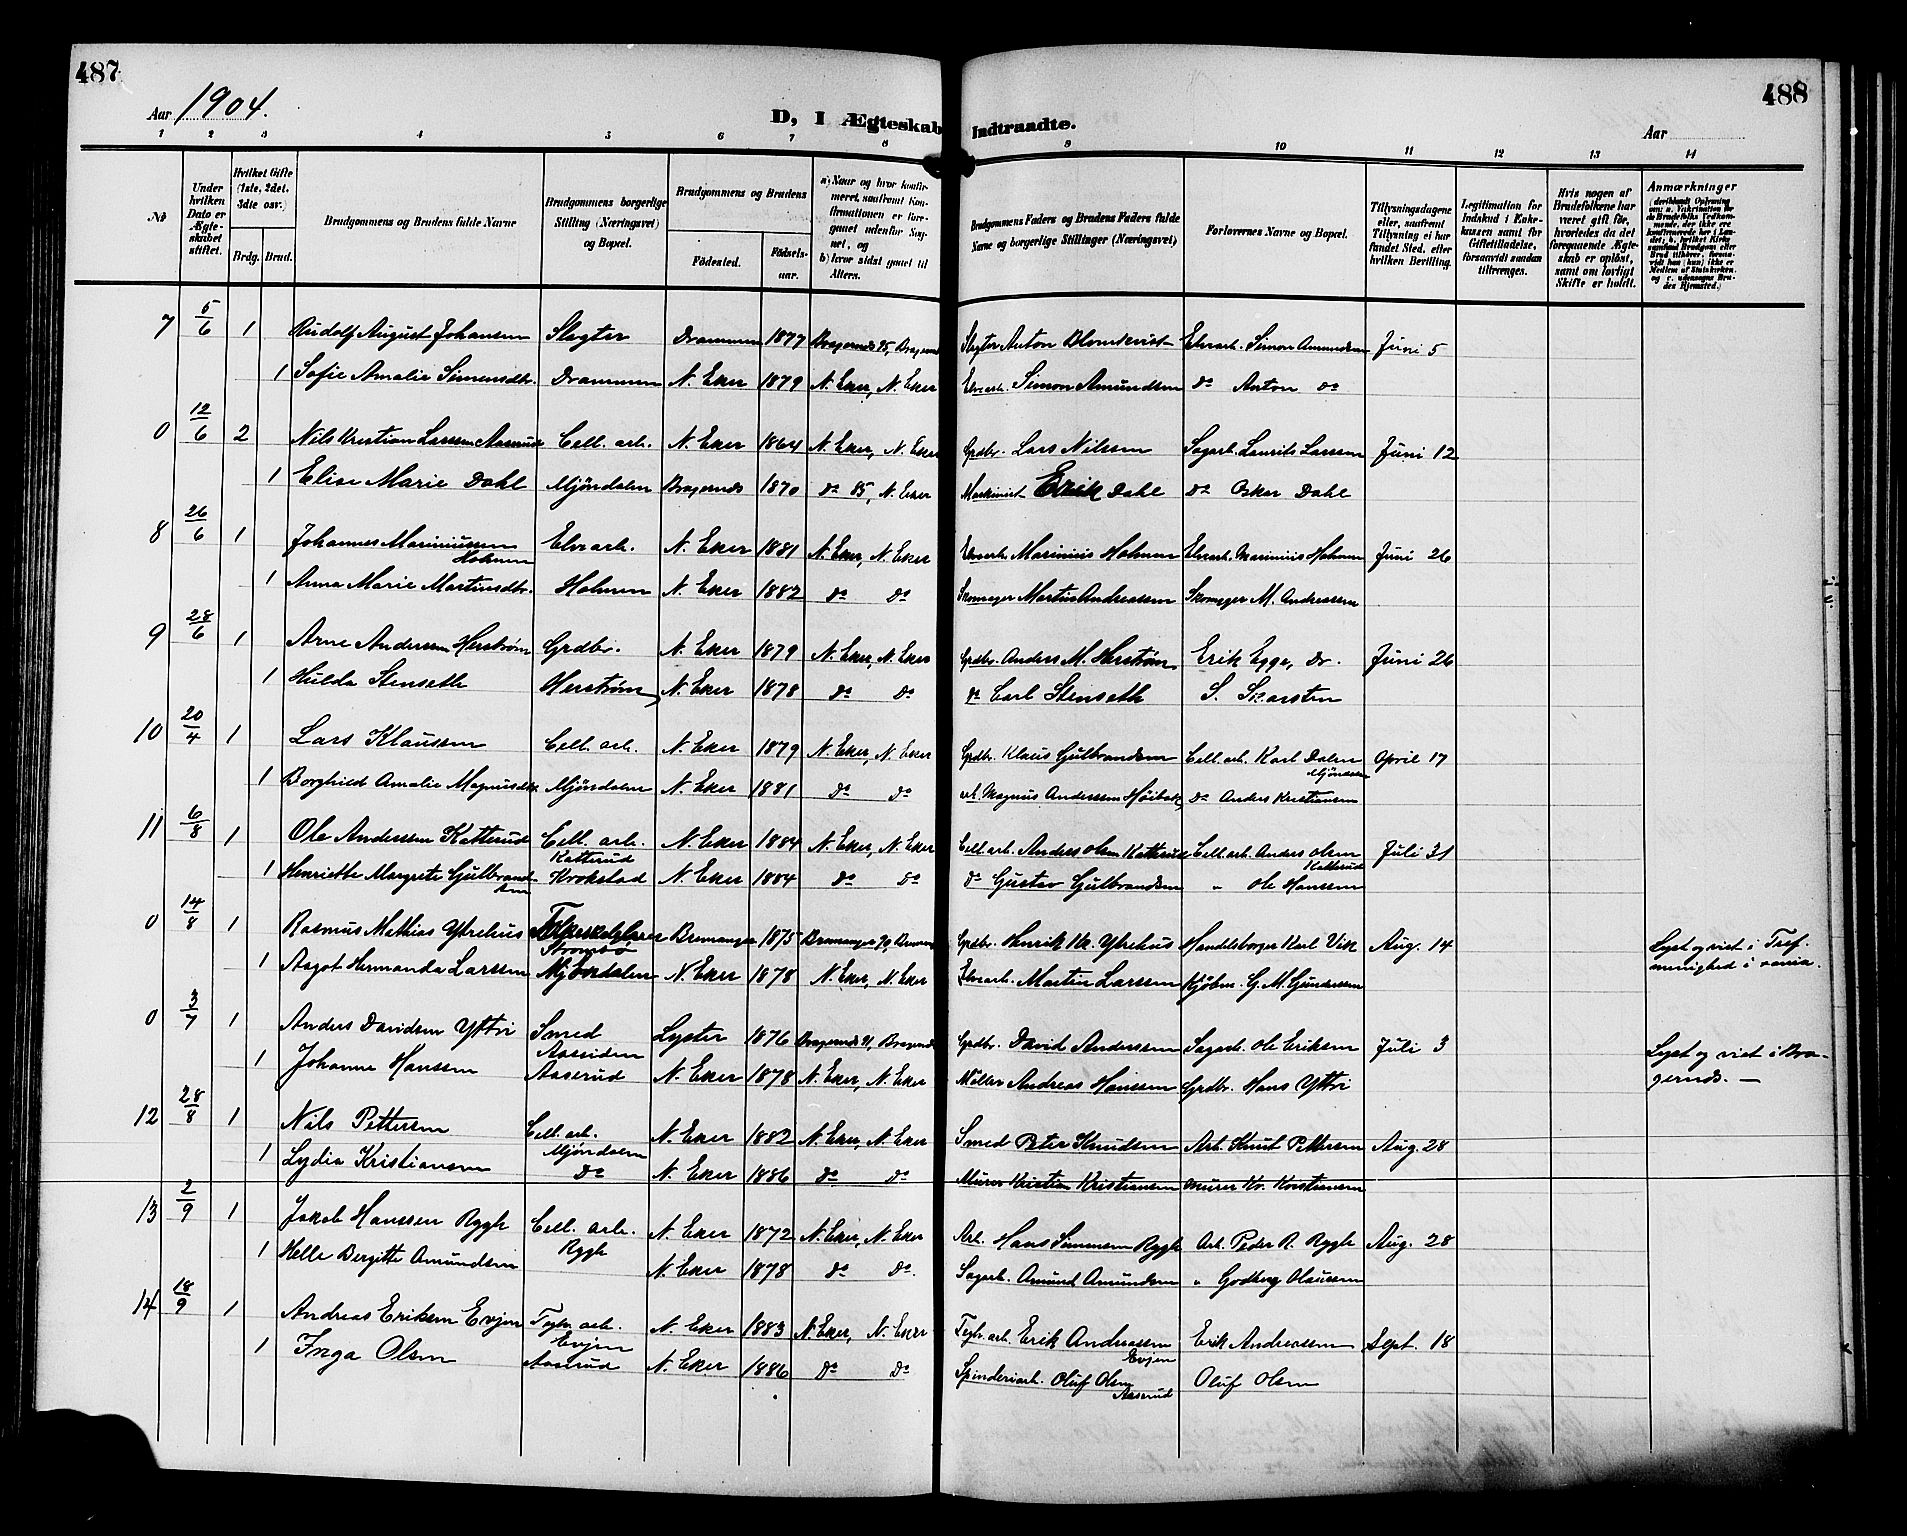 487
488
Aar 1904.
D, I Ægteskab Indtraadte.
Aar
1 2 3 4 5 6 7 8 9 10 11 12 13 14
No
Under hvilken Dato er Ægteskabet stiftet.
Hvilket Gifte (1ste, 2det, 3die osv.)
Brdg. Brud.
Brudgommens og Brudens fulde Navne
Brudgommens borgerlige Stilling (Næringsvei) og Bopæl.
Brudgommens og Brudens
Fødested.
Fødselsaar.
a) Naar og hvor konfirmeret, saafremt Konfirmationen er foregaaet udenfor Sognet, og b) hvor sidst gaaet til Alters.
Brudgommens Faders og Brudens Faders fulde Navne og borgerlige Stillinger (Næringsvei)
Forlovernes Navne og Bopæl.
Tillysningsdagene eller, saafremt Tillysning ei har fundet Sted, efter hvilken Bevilling.
Legitimation for Indskud i Enkekassen samt for Giftetilladelse, forsaavidt saadan tiltrænges.
Hvis nogen af Brudefolkene har været gift før, hvorledes da det foregaaende Ægteskab er opløst, samt om lovligt Skifte er holdt.
Anmærkninger
7 5/6 1 Rudolf August Johansen Slagter Drammen 1877 Bragernds 95, Bragernds Slagter Anton Blomkvist Elvearb. Simon Amundsen Juni 5
1 Sofie Amalie Simensdtr. Drammen N. Eker 1879 N. Eker, N. Eker Elvearb. Simon Amundsen do Anton do
0 12/6 2 Nils Kristian Larssen Aasrud Cell. arb. N. Eker 1864 N. Eker, N. Eker Grdbr. Lars Nilssen Sagarb. Laurits Larssen Juni 12
1 Elise Marie Dahl Mjøndalen Bragernds 1870 do 85, N. Eker Maskinist Erik Dahl do Oskar Dahl
8 26/6 1 Johannes Mariniussen Holmen Elvearb. N. Eker 1881 N. Eker, N. Eker Elvearb. Marinius Holmen Elvearb. Marinius Holmen Juni 26
1 Anna Marie Martinsdtr. Holmen N. Eker 1882 do do Skomager Martin Andreassen Skomager M. Andreassen
9 28/6 1 Arne Anderssen Herstrøm Grdbr. N. Eker 1879 N. Eker, N. Eker Grdbr. Anders M. Herstrøm Erik Egge, Dr. Juni 26
1 Hulda Stenseth Herstrøm N. Eker 1878 do do do Carl Stenseth S. Skarsten
10 20/4 1 Lars Klaussen Cell. arb. N. Eker 1879 N. Eker, N. Eker Grdbr. Klaus Gulbrandsen Cell. arb. Karl Dalen April 17
1 Borghild Amalie Magnusdtr. Mjøndalen N. Eker 1881 do do Magnus Anderssen Høibak do Anders Kristiansen
11 6/8 1 Ole Anderssen Katterud Cell. arb. Katterud N. Eker 1884 N. Eker, N. Eker Cell. arb. Anders Olsen Katterud Cell. arb. Anders Olsen Katterud Juli 31
1 Henriette Margrete Gulbrandsen Krokstad N. Eker 1884 do do do Gustav Gulbrandsen " Ole Hanssen
0 14/8 1 Rasmus Mathias Ytrehus Strømbø Bremanger 1875 Bremanger 90, Grdbr. Henrik Kr. Ytrehus Handelsborger Karl Vik Aug. 14 Lyst og viet i menighed i
1 Aagot Hermanda Larssen Mjøndalen N. Eker 1878 N. Eker, N. Eker Elvearb. Martin Larssen Kjøbm. G. M. Gundersen
0 3/7 1 Anders Davidsen Yttri Smed Aassiden Lyster 1876 Bragernds 91, Bragernds Grdbr. David Anderssen Sagarb. Ole Eriksen Juli 3 Lyst og viet i Bragernds. —
1 Johanne Hanssen Aaserud N. Eker 1878 N. Eker, N. Eker Møller Andreas Hanssen Grdbr. Hans Yttri
12 28/8 1 Nils Pettersen Cell. arb. Mjøndalen N. Eker 1882 N. Eker, N. Eker Smed Peter Knudsen Arb. Knut Pettersen Aug. 28
1 Lydia Kristiansen do N. Eker 1886 do do Murer Kristian Kristiansen Murer Kr. Kristiansen
13 2/9 1 Jakob Hanssen Rygh Cell. arb. Rygh N. Eker 1872 N. Eker, N. Eker Arb. Hans Simensen Rygh Arb. Peder R. Rygh Aug. 28
1 Helle Bergitte Amundsen N. Eker 1878 do do. Sagarb. Amund Amundsen " Godberg Olaussen
14 18/9 1 Andreas Eriksen Evjen Teglv. arb. Evjen N. Eker 1883 N. Eker, N. Eker Teglv. arb. Erik Andreassen Evjen Erik Andreassen Sept. 18
1 Inga Olsen Aaserud N. Eker 1886 do do Spinderiarb. Oluf Olsen Aaserud Oluf Olsen